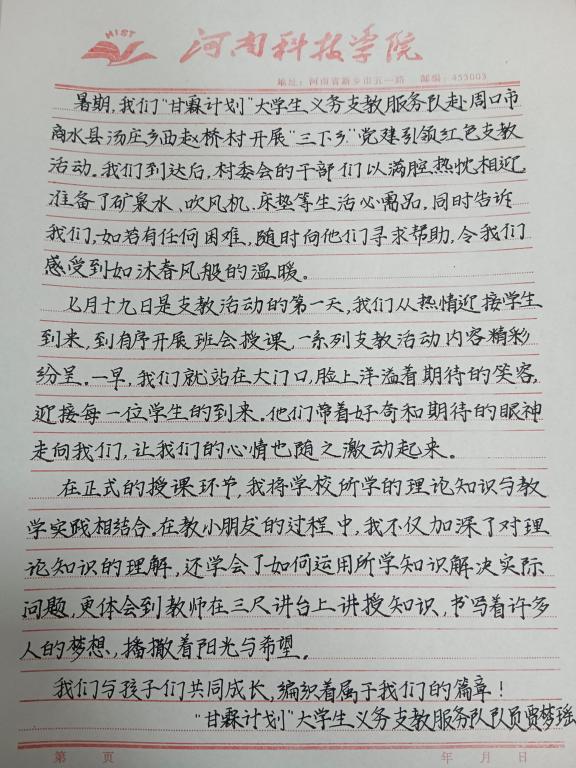 HIST
河南科技学院
地址：河南省新乡市五一路 邮编：453003
暑期，我们“甘霖计划”大学生义务支教服务队赴周口市
商水县汤庄乡西赵桥村开展“三下乡”党建引领红色支教
活动。我们到达后，村委会的干部们以满腔热忱相迎，
准备了矿泉水、吹风机、床垫等生活必需品，同时告诉
我们，如若有任何困难，随时向他们寻求帮助，令我们
感受到如沐春风般的温暖。
七月十九日是支教活动的第一天，我们从热情迎接学生
到来，到有序开展班会授课，一系列支教活动内容精彩
纷呈。一早，我们就站在大门口，脸上洋溢着期待的笑容，
迎接每一位学生的到来。他们带着好奇和期待的眼神
走向我们，让我们的心情也随之激动起来。
在正式的授课环节，我将学校所学的理论知识与教
学实践相结合。在教小朋友的过程中，我不仅加深了对理
论知识的理解，还学会了如何运用所学知识解决实际
问题，更体会到教师在三尺讲台上讲授知识，书写着许多
人的梦想，播撒着阳光与希望。
我们与孩子们共同成长，编织着属于我们的篇章！
“甘霖计划”大学生义务支教服务队队员贾梦瑶
第 页 年 月 日